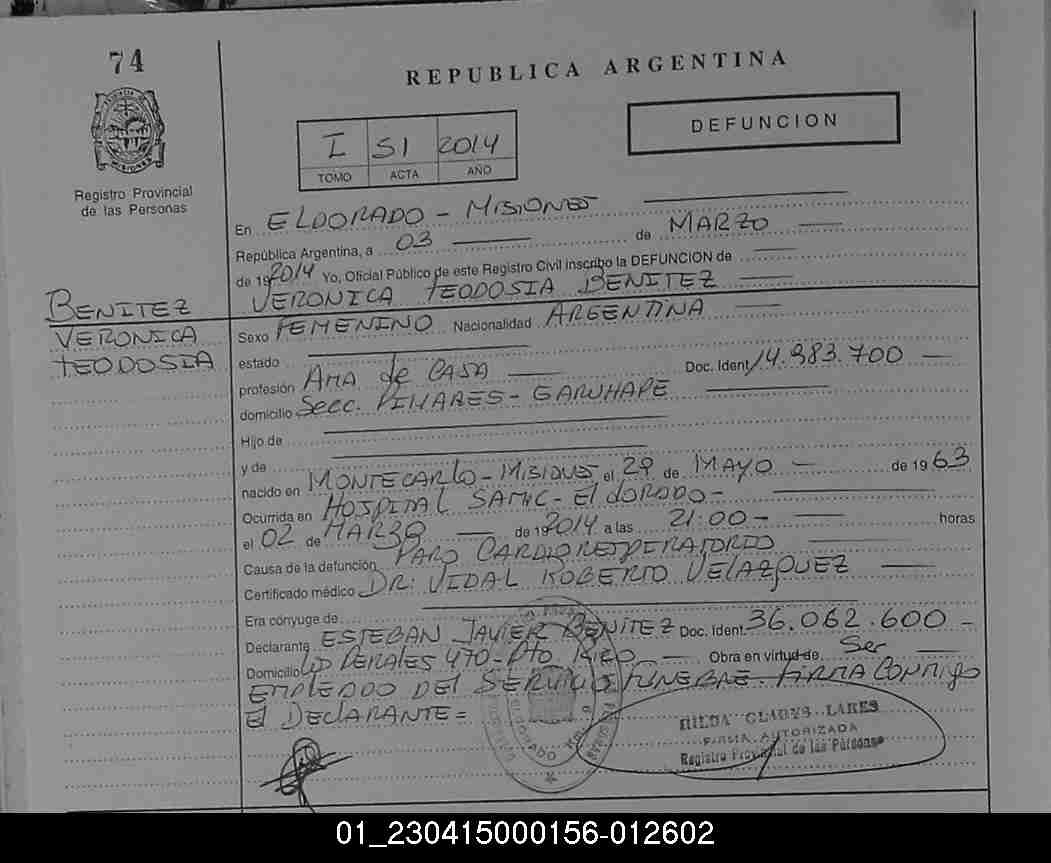 74
REPUBLICA ARGENTINA
DEFUNCION
I SI 2014
TOMO ACTA AÑO
MISIONES
Registro Provincial
de las Personas
En ELDORADO - MISIONES
República Argentina, a 03 de MARZO
de 192014 Yo, Oficial Público de este Registro Civil inscribo la DEFUNCION de
BENITEZ
VERONICA
TEODOSIA
VERONICA TEODOSIA BENITEZ
Sexo FEMENINO Nacionalidad ARGENTINA
estado
profesión AMA de CASA Doc. Ident 14.983.700
domicilio Secc. PINARES - GARUHAPE
Hijo de
y de
nacido en MONTECARLO - MISIONES el 29 de MAYO de 1963
Ocurrida en HOSPITAL SAMIC - El DORADO -
el 02 de MARZO de 192014 a las 21:00 - horas
Causa de la defunción PARO CARDIORESPIRATORIO
Certificado médico DR: VIDAL ROBERTO VELAZQUEZ
Era cónyuge de
Declarante ESTEBAN JAVIER BENITEZ Doc. Ident. 36.062.600 -
Domicilio PERALES 470 - Pto RICO Obra en virtud de Ser
EMPLEADO DEL SERVICIO FUNEBRE. FIRMA CONMIGO
El DECLARANTE =
HILDA GLADYS LARES
FIRMA AUTORIZADA
Registro Provincial de las Personas
01_230415000156-012602